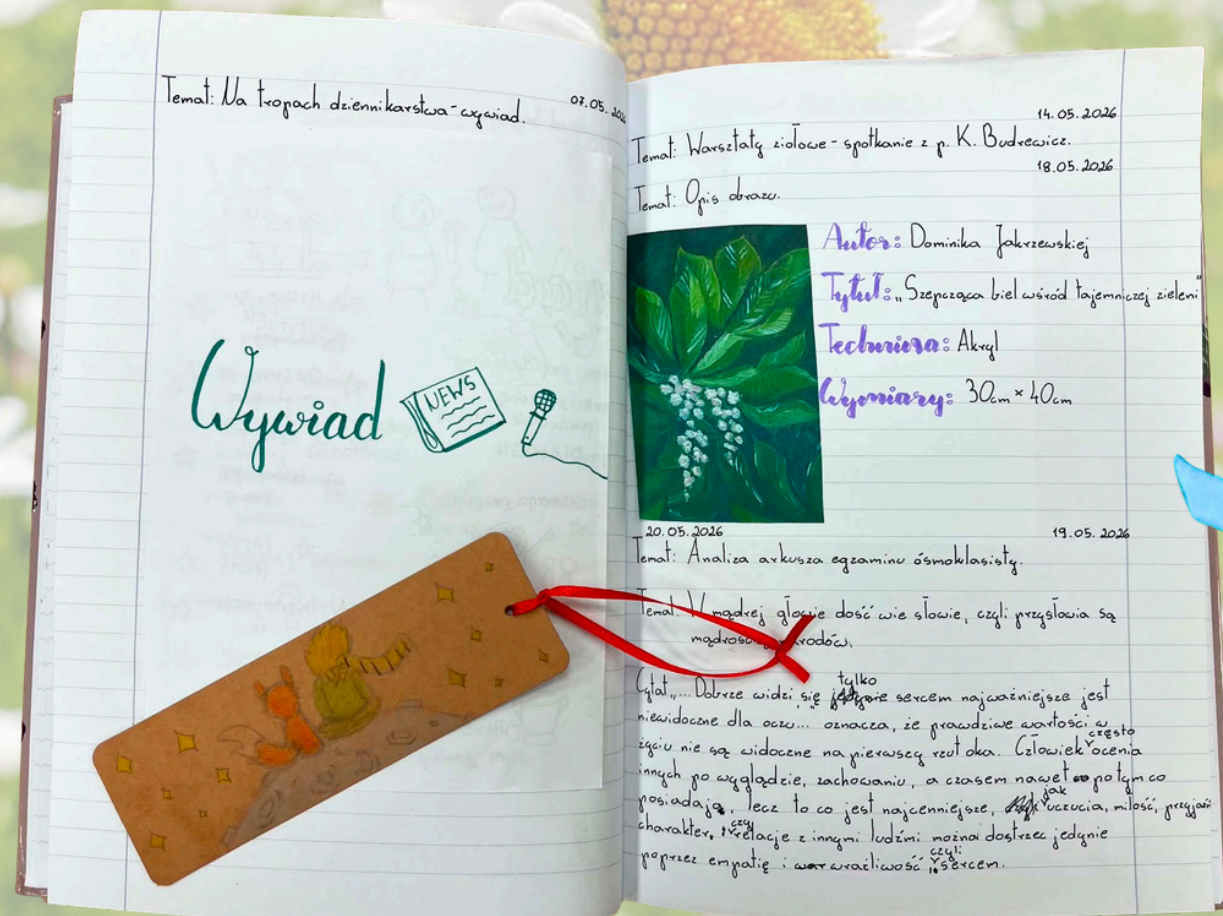 Temat: Na tropach dziennikarstwa - wywiad.
07.05.202
Wywiad
NEWS
14.05.2026
Temat: Warsztaty ziołowe - spotkanie z p. K. Budrewicz.
18.05.2026
Temat: Opis obrazu.
Autor: Dominika Jakrzewskiej
Tytuł: „Szepcząca biel wśród tajemniczej zieleni"
Technika: Akryl
Wymiary: 30cm × 40cm
20.05.2026
19.05.2026
Temat: Analiza arkusza egzaminu ósmoklasisty.
Temat: W mądrej głowie dość wie słowie, czyli przysłowia są
mądrością narodów.
tylko
Cytat „... Dobrze widzi się sercem najważniejsze jest
niewidoczne dla oczu... oznacza, że prawdziwe wartości w
często
życiu nie są widoczne na pierwszy rzut oka. Człowiek ocenia
innych po wyglądzie, zachowaniu, a czasem nawet po tym co
jak
posiadają, lecz to co jest najcenniejsze, uczucia, miłość, przyjaźń
czy
charakter, relacje z innymi ludźmi można dostrzec jedynie
czyli
poprzez empatię i wrażliwość sercem.